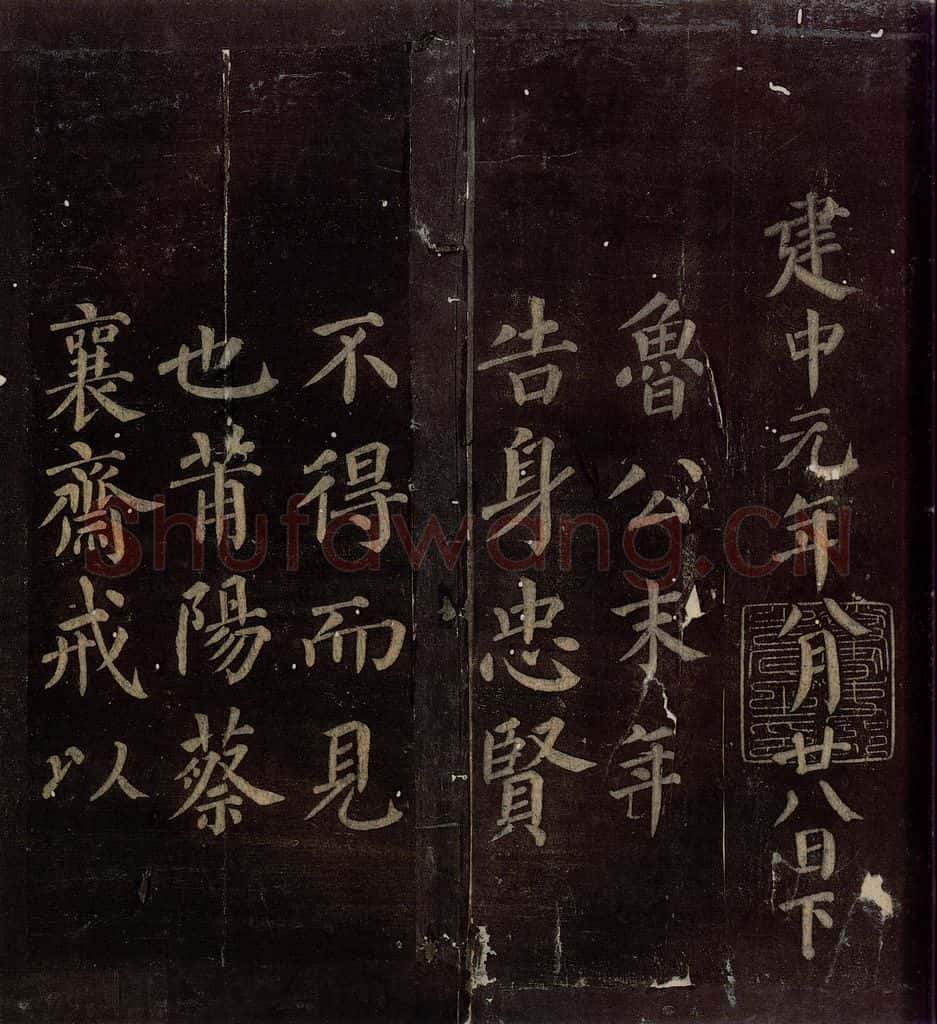 建中元年八月廿八日下
魯公末年
告身忠賢
不得而見
也莆陽蔡
襄齋戒以
Shufawang.CN